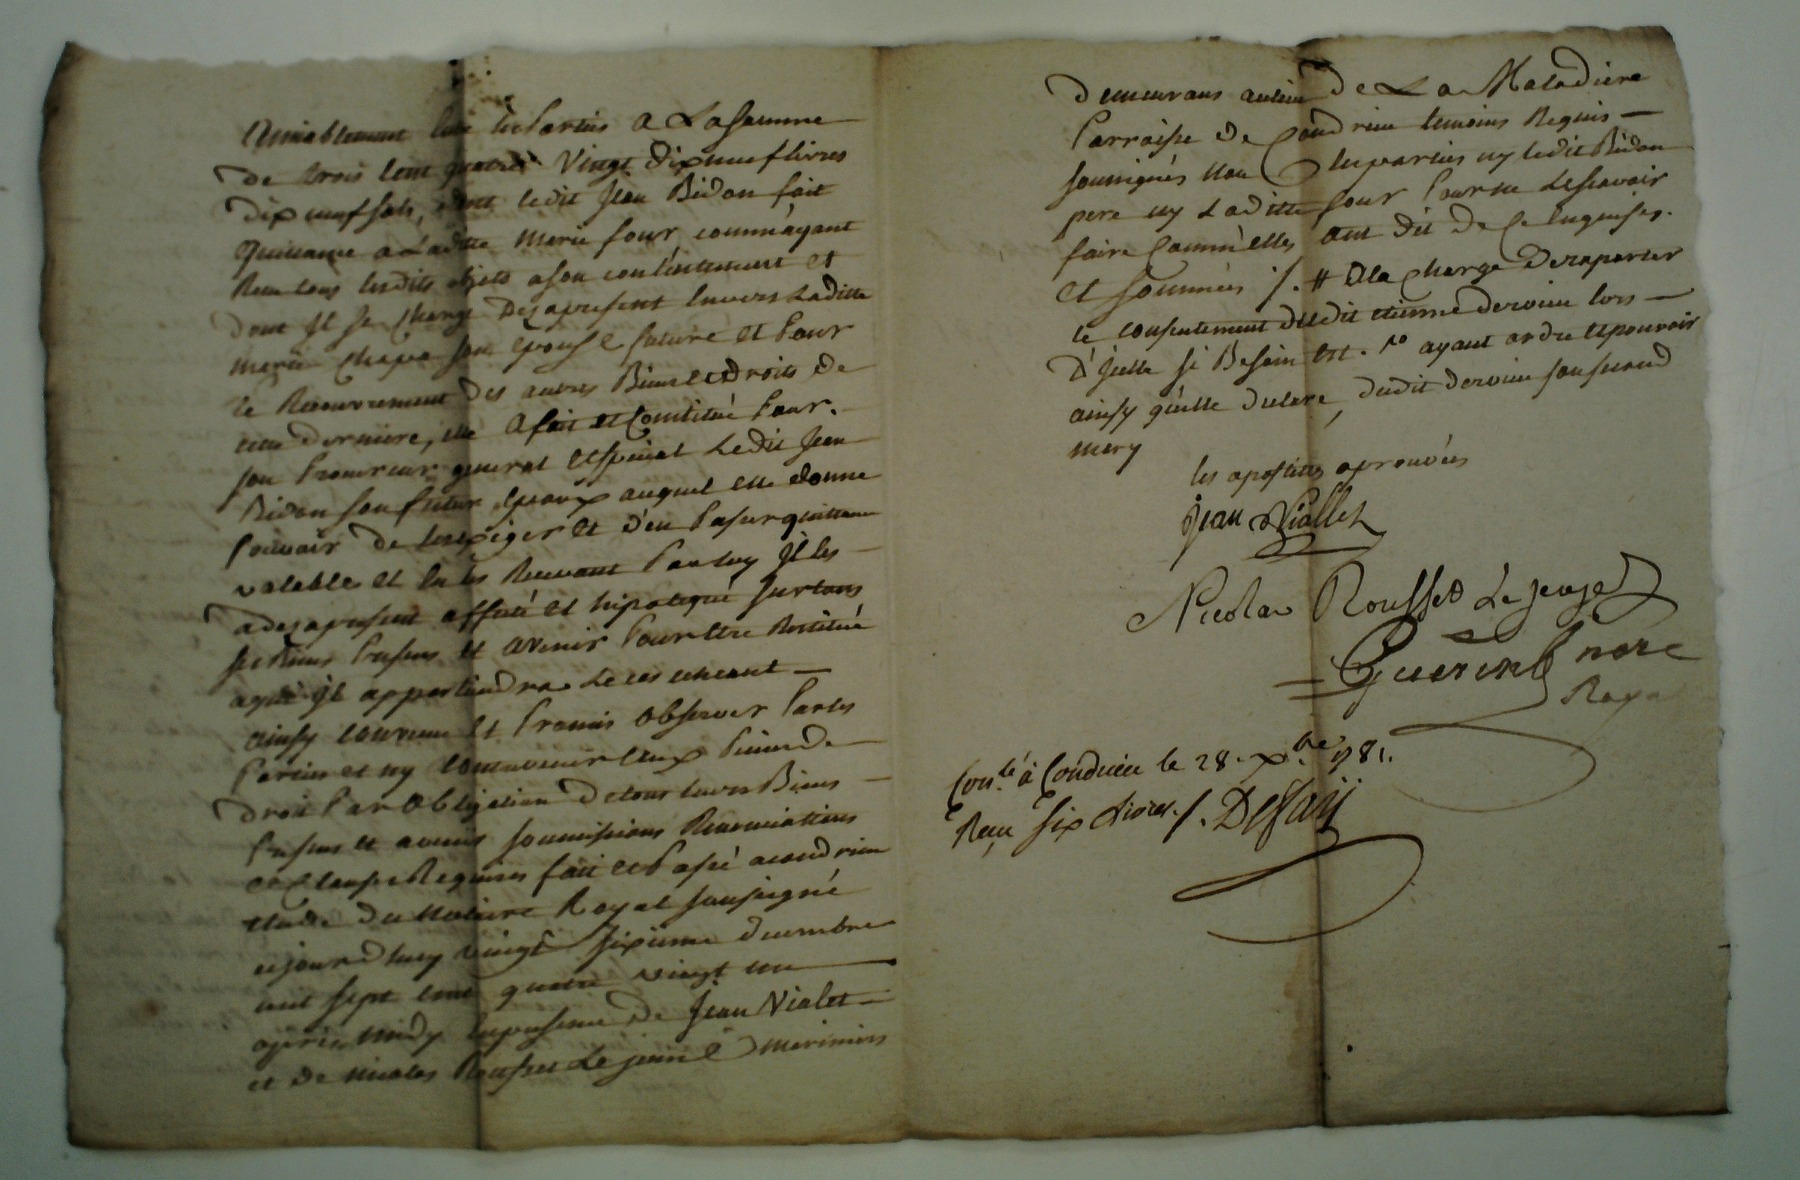 amiablement entre les Parties a La somme
de trois Cent quatre Vingt dix neuf livres
dix neuf sols, dont ledit Jean Bidon fait
quittance a Laditte Marie four comme ayant
Reçu tous lesdits objets a son contentement et
dont Il se Charge Des a present Envers Laditte
Marie son epouse future et Pour
le Recouvrement des autres Biens et Droits de
cette Derniere, elle a fait et Constitué Pour
son Procureur general et special Ledit Jean
Bidon son futur Epoux auquel elle donne
Pouvoir de les exiger et d'en Passer quittance
valable et En les Recevant Par luy Il les
a des a present affecté et hipotequé sur tous
ses Biens Presens et avenir Pour etre Restitué
a qui Il appartiendra Le cas echeant
ainsy convenu et Promis observer Par les
Parties et ny contrevenir a Peine de
droit Par obligation de tous leurs Biens
Presens et avenir soumissions Renonciations
et Clauses Requises fait et Passé a Condrieu
etude du Notaire Royal soussigné
cejourdhuy vingt sixieme decembre
mil sept cent quatre vingt un
apres midy En presence de Jean Vialet
et de Nicolas Rousset Le jeune mariniers
demeurans au lieu de La Maladiere
Parroisse de Condrieu temoins Requis
soussignés non les parties ny ledit Bidon
pere ny Laditte four Pour ne Le scavoir
faire Comm'elles ont dit de ce Enquises
et sommées /. # a la Charge de raporter
le consentement dudit etienne dervieu lors
d'Icelle si Besoin est. ayant ordre et pouvoir
ainsy qu'elle declare, dudit dervieu son second
mary
les apostilles aprouvées
jean Viallet
Nicolas Rousset Le jeune
Guerin nore
Royal
Con.lé à Condrieu le 28. Xbre 1781.
Reçu six livres /. Dessaij